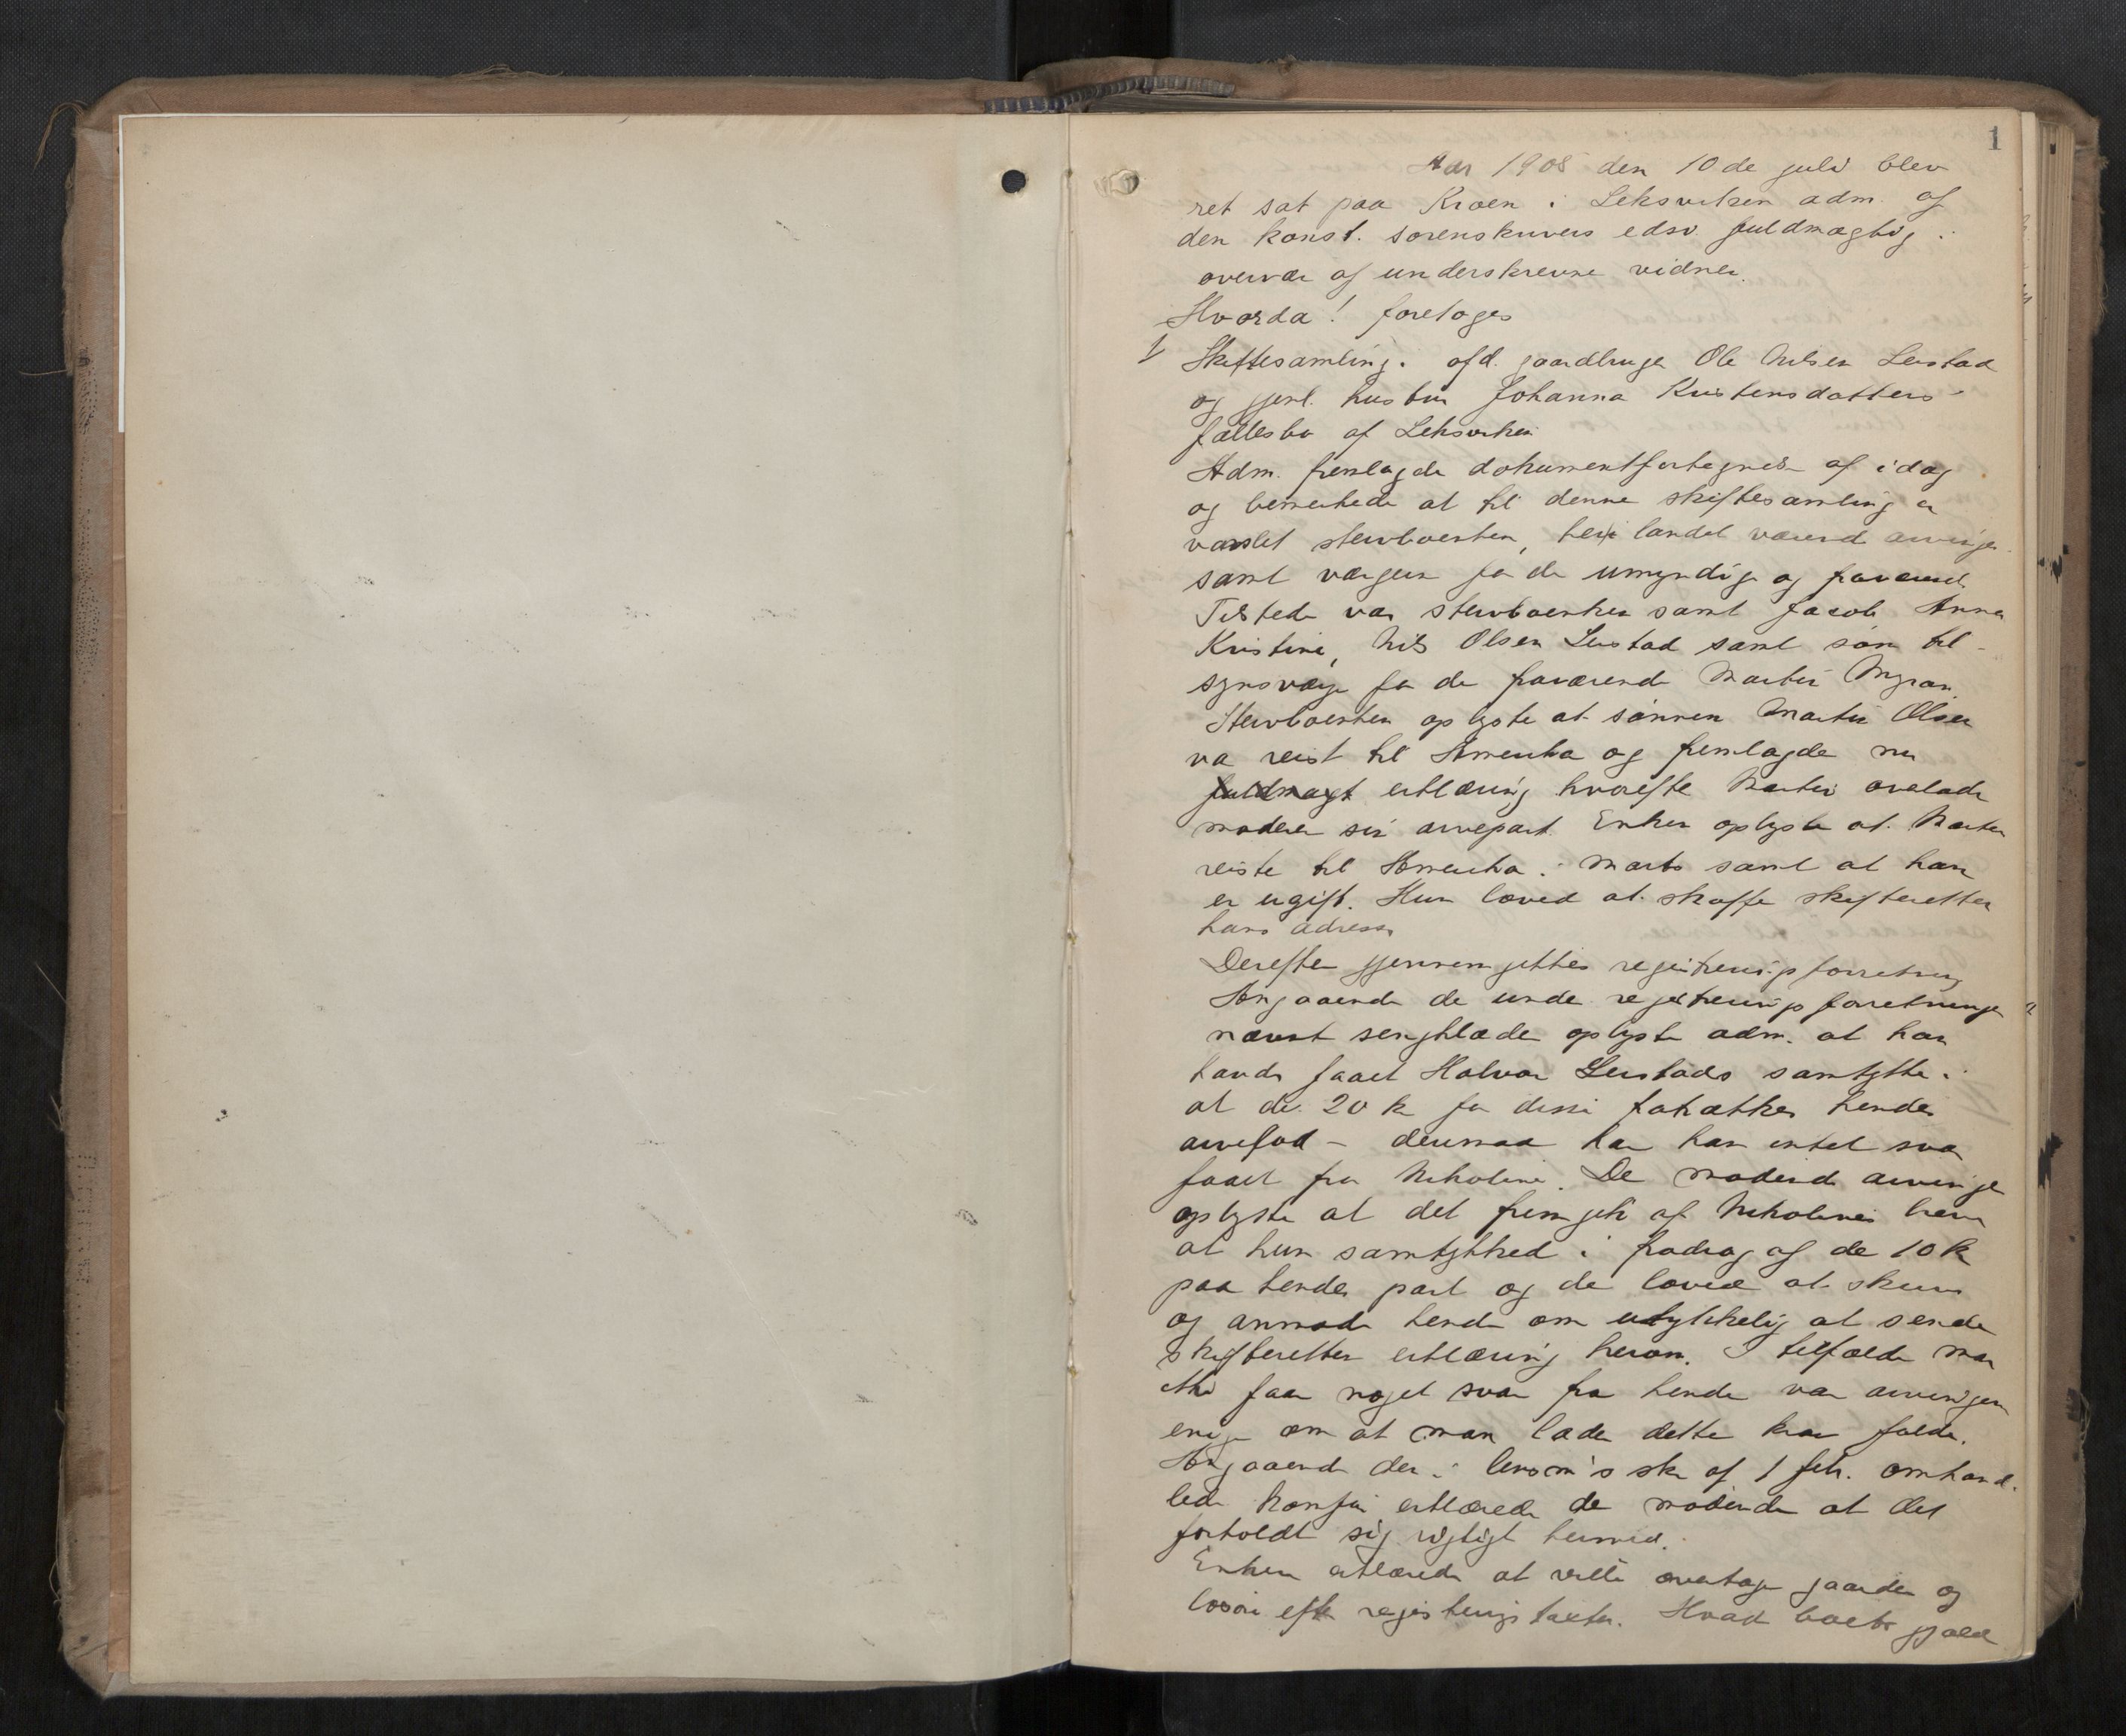 1
Aar 1908 den 10de juli blev
ret sat paa Kroen i Leksviken adm. af
den konst. sorenskrivers edsv. fuldmægtig i
overvær af underskrevne vidner.
Hvorda! foretoges
1 Skiftesamling i afd. gaardbruger Ole Nilsen Leistad
og gjenl. hustru Johanna Kristensdatters
fællesbo af Leksviken
Adm. fremlagde dokumentfortegnelse af idag
og bemerkede at til denne skiftesamling er
varslet sterboenken, her i landet værende arvinger
samt værgen for de umyndige og fraværende.
Tilstede var sterboenken samt Jacob Anna
Kristine, Nils Olsen Leistad samt som til-
synsværge for de fraværende Martin Myran.
Sterboenken oplyste at sønnen Martin Olsen
var reist til Amerika og fremlagde nu
fuldmagt erklæring hvorefter Martin overlader
moderen sin arvepart. Enken oplyste at Martin
reiste til Amerika i Marts samt at han
er ugift. Hun loved at skaffe skifteretten
hans adresse
Derefter gjennemgikkes registreringsforretning
Angaaende de under registreringsforretningen
nævnt sengklæde oplyste adm. at han
havde faaet Halvor Leistads samtykke i
at de 20 kr for disse fratrækkes hendes
arvelod – derimod har han intet svar
faaet fra Nikoline. De mødende arvinger
oplyste at det fremgik af Nikolines brev
at hun samtykked i fradrag af de 10 kr
paa hendes part og de loved at skrive
og anmode hende om udtykkelig at sende
skifteretten erklæring herom. I tilfælde man
ikke faar noget svar fra hende var arvingerne
enige om at man lader dette krav falde.
Angaaende den i lensm's skr af 1 febr. omhand-
lede erklærede de mødende at det
forholdt sig rigtigt hermed.
Enken erklærede at ville overtage gaarden og
løsøre efter registreringstaxten. Hvad boets gjæld